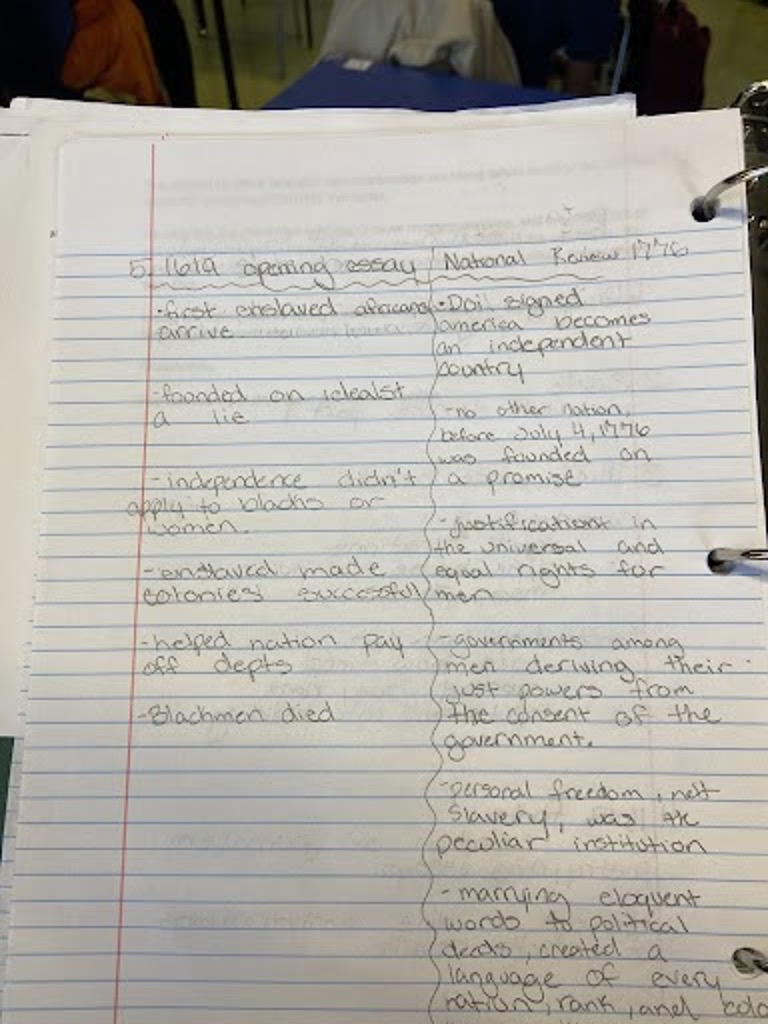 5) 1619 opening essay
·first enslaved africans
arrive
-founded on idealst
a lie
-independence didn't
apply to blacks or
women.
-enslaved made
colonies successful
-helped nation pay
off depts
-Blackmen died
National Review 1776
·DOI signed
america becomes
an independent
country
-no other nation,
before July 4, 1776
was founded on
a promise
-justification in
the universal and
equal rights for
men
-governments among
men deriving their
just powers from
the consent of the
government.
-personal freedom, not
slavery, was the
peculiar institution
-marrying eloquent
words to political
deeds, created a
language of every
nation, rank, and colo